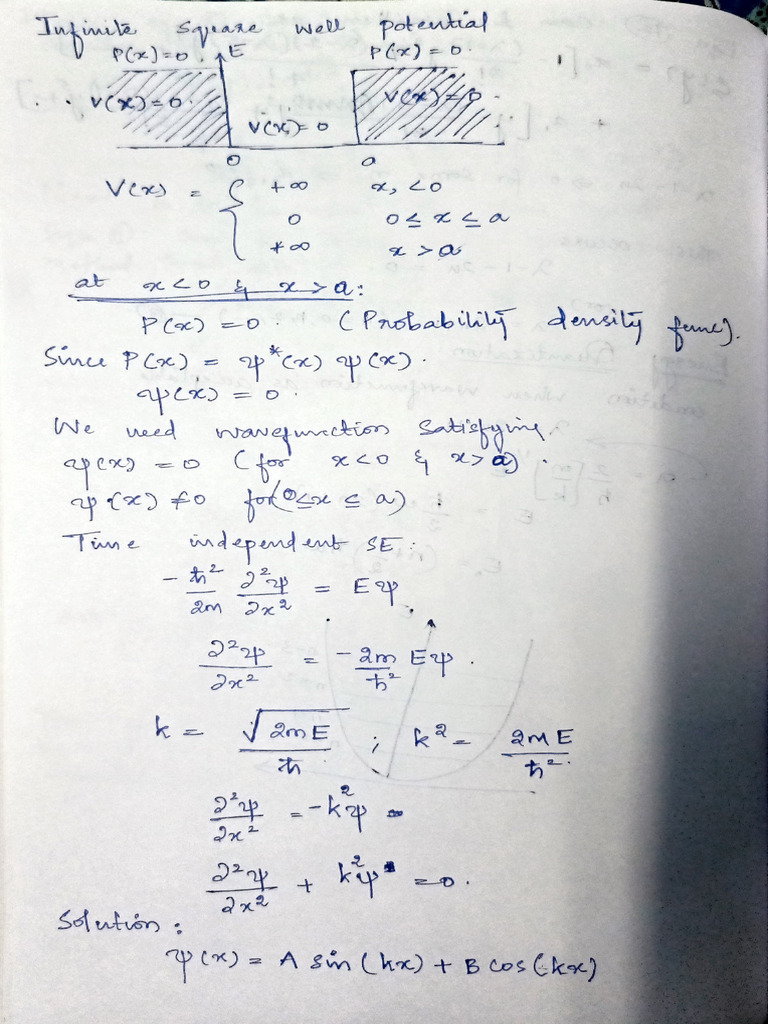 Infinite square well potential
P(x)=0 E P(x)=0
V(x)=0 V(x)=0 V(x)=0
0 a
V(x) = { +∞ x, <0
0 0 ≤ x ≤ a
+∞ x > a
at x<0 & x>a:
P(x) = 0. (Probability density func).
Since P(x) = ψ*(x) ψ(x).
ψ(x) = 0.
We need wavefunction satisfying
ψ(x) = 0 (for x<0 & x>a).
ψ(x) ≠ 0 for (0≤x ≤ a).
Time independent SE:
-ħ²/2m ∂²ψ/∂x² = Eψ
∂²ψ/∂x² = -2m/ħ² Eψ.
k = √2mE/ħ ; k² = 2mE/ħ²
∂²ψ/∂x² = -k²ψ
∂²ψ/∂x² + k²ψ = 0.
Solution:
ψ(x) = A sin(kx) + B cos(kx)